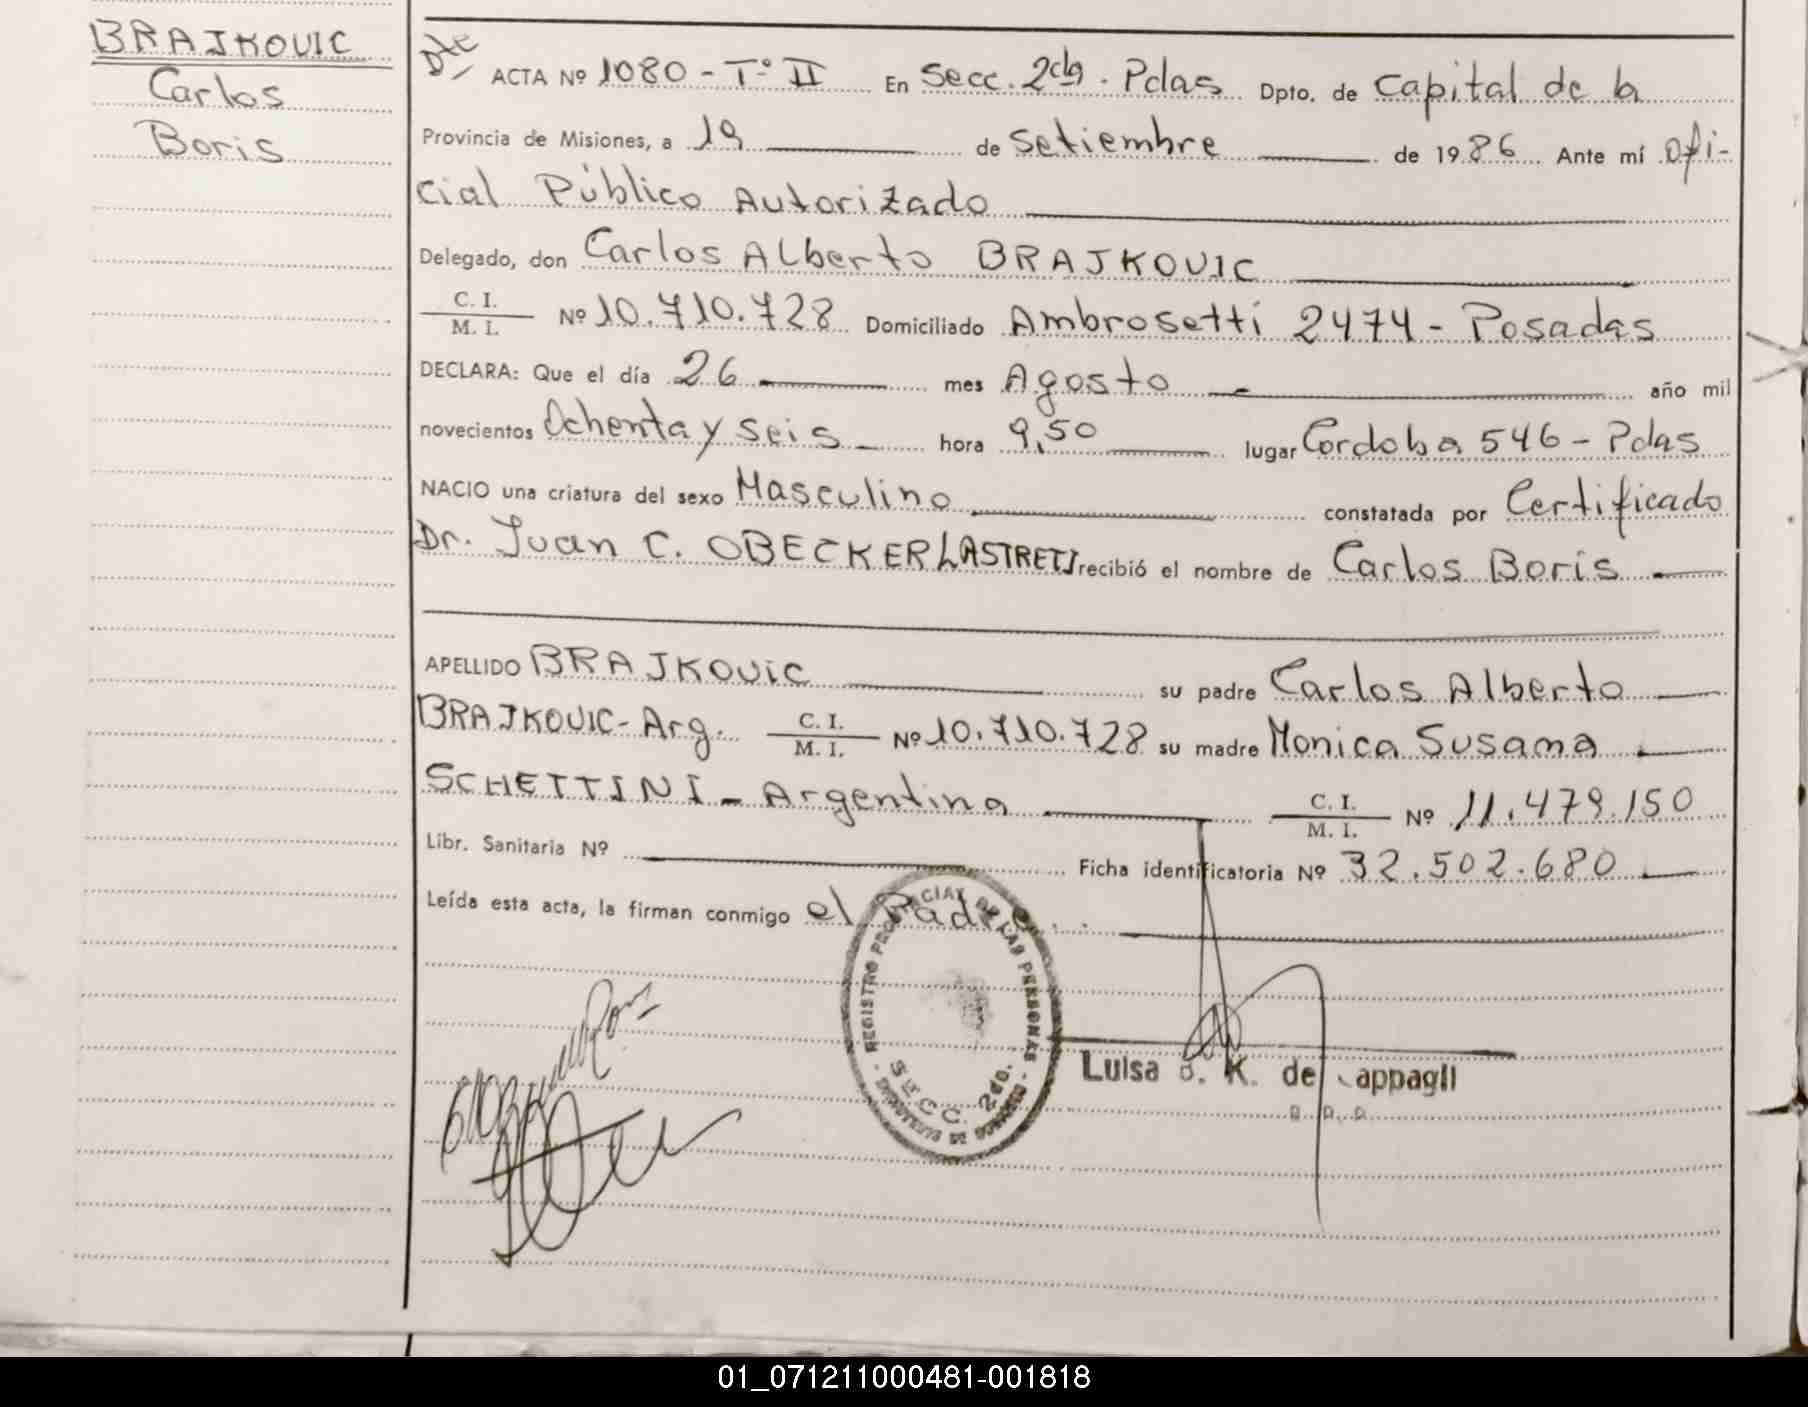 BRAJKOVIC
Carlos
Boris
Dte
ACTA Nº 1080 - Tº II En Secc. 2da. Pdas Dpto. de Capital de la
Provincia de Misiones, a 19 de Setiembre de 1986 Ante mí Ofi-
cial Público Autorizado
Delegado, don Carlos Alberto BRAJKOVIC
C. I.
M. I. Nº 10.710.728 Domiciliado Ambrosetti 2474 - Posadas
DECLARA: Que el día 26 mes Agosto año mil
novecientos Ochenta y seis hora 9,50 lugar Cordoba 546 - Pdas
NACIO una criatura del sexo Masculino constatada por Certificado
Dr. Juan C. OBECKER LASTRETI recibió el nombre de Carlos Boris
APELLIDO BRAJKOVIC su padre Carlos Alberto
BRAJKOVIC - Arg. C. I. M. I. Nº 10.710.728 su madre Monica Susana
SCHETTINI - Argentina C. I. M. I. Nº 11.479.150
Libr. Sanitaria Nº Ficha identificatoria Nº 32.502.680
Leída esta acta, la firman conmigo el Padre
REGISTRO PROVINCIAL DE LAS PERSONAS
SECC. 2da.
Luisa K. de
01_071211000481-001818